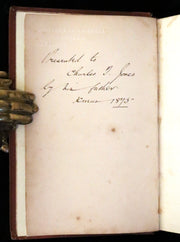 Presented to
Charles T. Jones
by his father
Xmas 1875